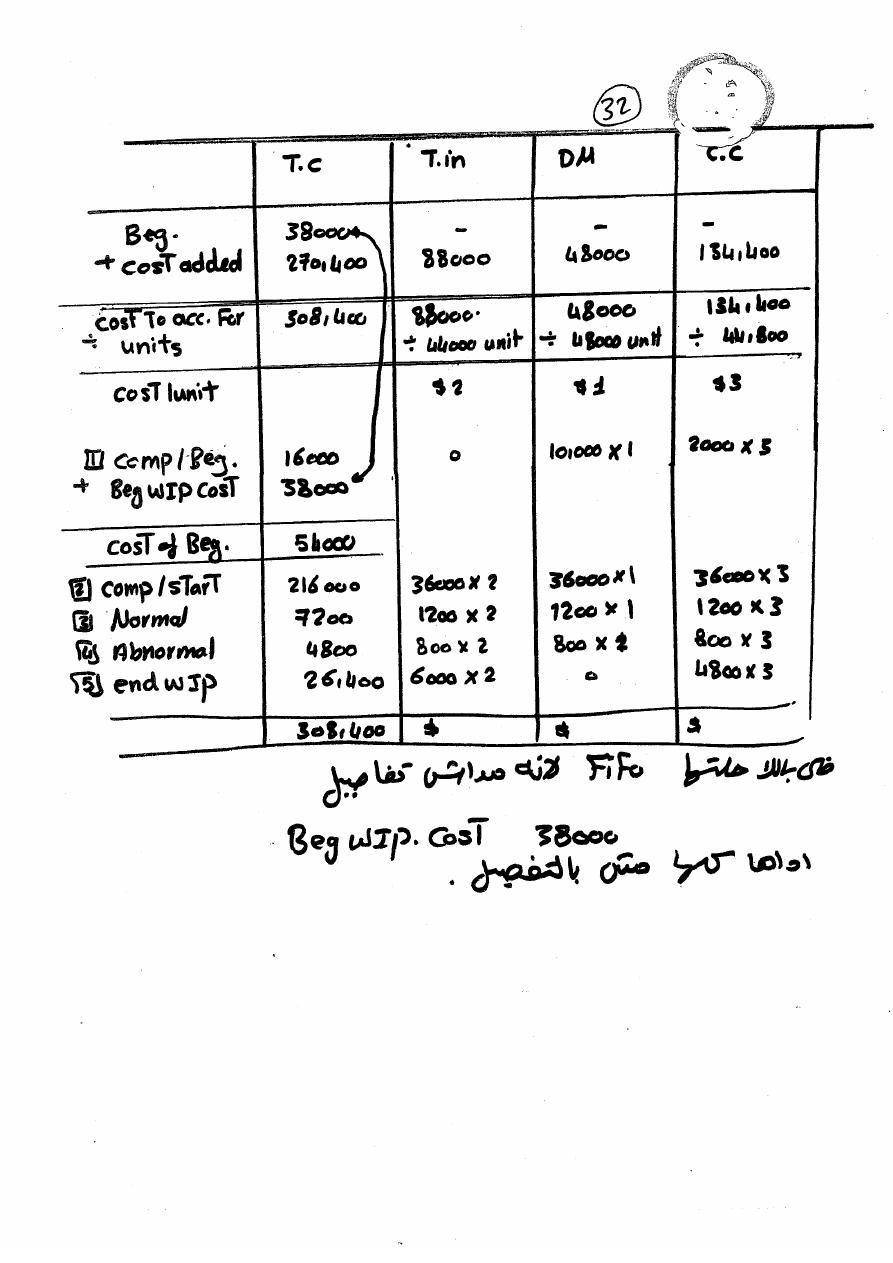 32
T.C T.in DM C.C
Beg. 38000 - - -
+ cosT added 270,400 88000 48000 134,400
cosT To acc. For 308,400 88000. 48000 134,400
÷ units ÷ 44000 unit ÷ 48000 unit ÷ 44,800
cosT/unit $2 $1 $3
[1] comp/Beg. 16000 0 10,000 X 1 2000 X 3
+ Beg WIP CosT 38000
cosT of Beg. 54000
[2] comp/sTarT 216000 36000 X 2 36000 X 1 36000 X 3
[3] Normal 7200 1200 X 2 1200 X 1 1200 X 3
[4] Abnormal 4800 800 X 2 800 X 800 X 3
[5] end WIP 26,400 6000 X 2 0 4800 X 3
308,400 $ $ $
خلى بالك FiFo لانه تفاصيل
Beg WIP. CosT 38000
مش بالتفصيل .